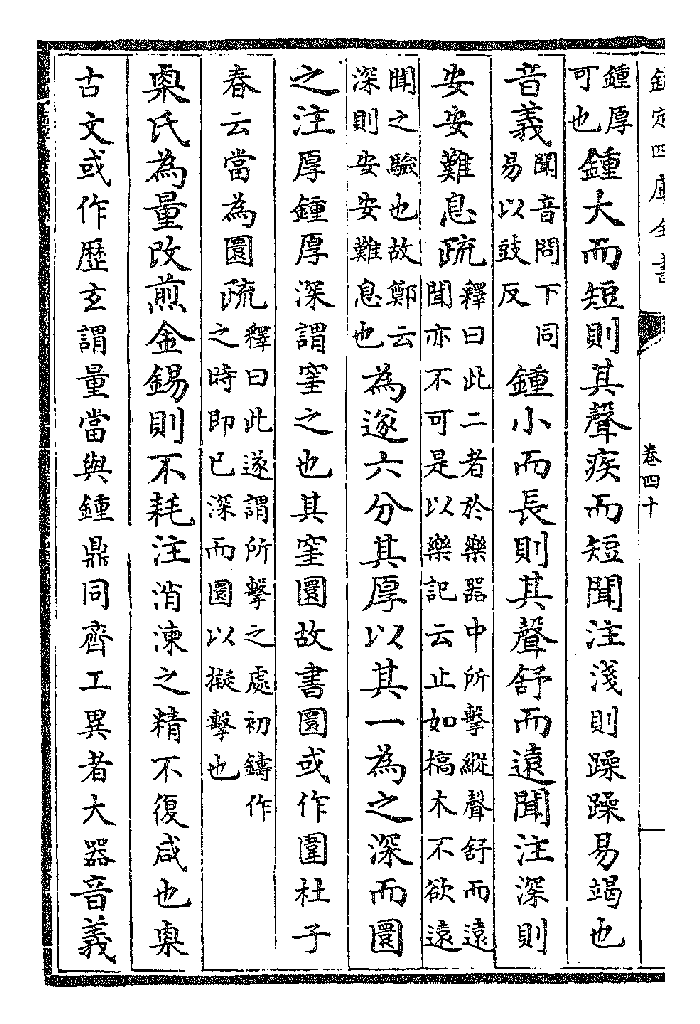 欽定四庫全書
卷四十
鍾厚
可也
鍾大而短則其聲疾而短聞注淺則躁躁易竭也
音義
聞音問下同
易以豉反
鍾小而長則其聲舒而遠聞注深則
安安難息疏
釋曰此二者於樂器中所擊縱聲舒而遠
聞亦不可是以樂記云止如槁木不欲遠
聞之驗也故鄭云
深則安安難息也
為遂六分其厚以其一為之深而圜
之注厚鍾厚深謂窐之也其窐圜故書圜或作圍杜子
春云當為圜疏
釋曰此遂謂所擊之處初鑄作
之時即已深而圜以擬擊也
㮚氏為量改煎金錫則不耗注消湅之精不復咸也㮚
古文或作歷玄謂量當與鍾鼎同齊工異者大器音義